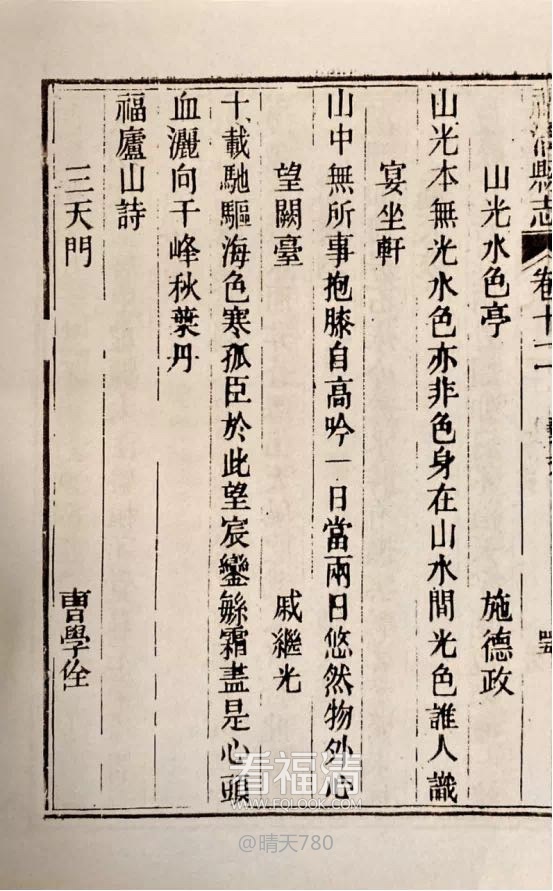 福清縣志 卷十二
山光水色亭 施德政
山光本無光水色亦非色身在山水間光色誰人識
宴坐軒
山中無所事抱膝自高吟一日當兩日悠然物外心
望闕臺 戚繼光
十載馳驅海色寒孤臣於此望宸鑾繁霜盡是心頭
血灑向千峰秋葉丹
福廬山詩
三天門 曹學佺
看福清
WWW.FQLOOK.COM
@晴天780